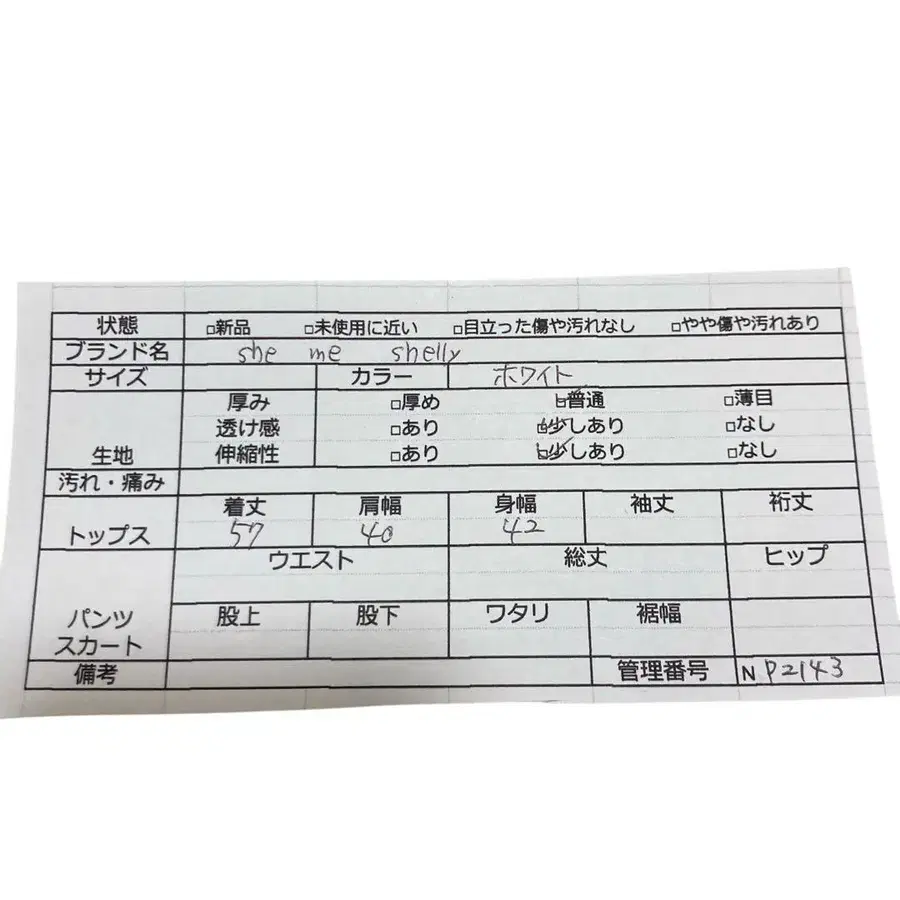 状態 □新品 □未使用に近い □目立った傷や汚れなし □やや傷や汚れあり
ブランド名 she me shelly
サイズ カラー ホワイト
厚み □厚め ☑普通 □薄目
透け感 □あり ☑少しあり □なし
生地 伸縮性 □あり ☑少しあり □なし
汚れ・痛み
着丈 肩幅 身幅 袖丈 裄丈
トップス 57 40 42
ウエスト 総丈 ヒップ
パンツ 股上 股下 ワタリ 裾幅
スカート
備考 管理番号 N P2143